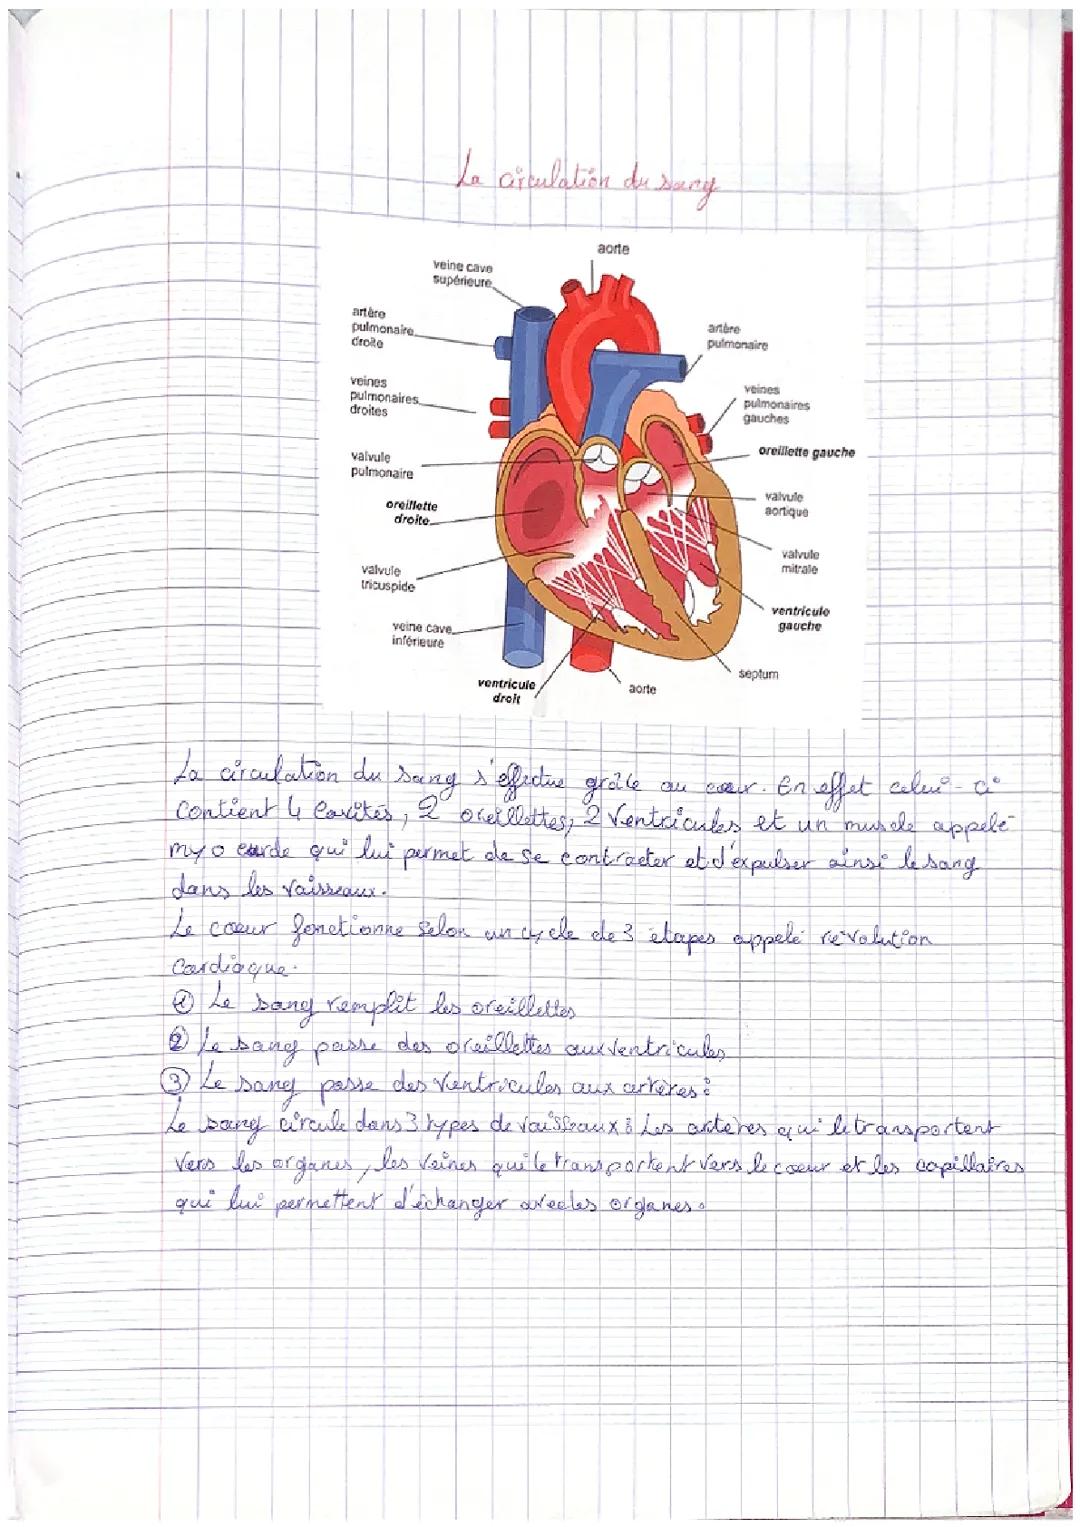 La circulation du sang
aorte
veine cave
supérieure
artère
pulmonaire
droite
artère
pulmonaire
veines
pulmonaires
droites
veines
pulmonaires
gauches
oreillette gauche
valvule
pulmonaire
valvule
aortique
oreillette
droite
valvule
mitrale
valvule
tricuspide
ventricule
gauche
veine cave
inférieure
septum
ventricule
droit
aorte
La circulation du sang s'effectue grâce au coeur. En effet celui-ci
contient 4 cavités, 2 oreillettes, 2 ventricules et un muscle appelé
myocarde qui lui permet de se contracter et d'expulser ainsi le sang
dans les vaisseaux.
Le coeur fonctionne selon un cycle de 3 étapes appelé révolution
cardiaque.
① Le sang remplit les oreillettes
② Le sang passe des oreillettes aux ventricules
③ Le sang passe des ventricules aux artères :
Le sang circule dans 3 types de vaisseaux : Les artères qui le transportent
vers les organes, les veines qui le transportent vers le coeur et les capillaires
qui lui permettent d'échanger avec les organes.